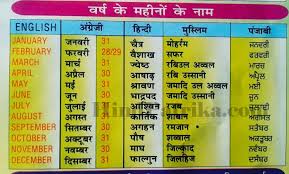 वर्ष के महीनों के नाम
ENGLISH अंग्रेजी हिन्दी मुस्लिम पंजाबी
JANUARY जनवरी 31 चैत्र मोहर्रम ਜਨਵਰੀ
FEBRUARY फरवरी 28/29 वैशाख सफर ਫਰਵਰੀ
MARCH मार्च 31 ज्येष्ठ रबिउल अव्वल ਮਾਰਚ
APRIL अप्रैल 30 आषाढ़ रबि उस्सानी
MAY मई 31 सावन जमादिल अव्वल ਮਈ
JUNE जून 30 भाद्रपद जमादि उस्सानी ਜੂਨ
JULY जुलाई 31 आश्विन रजब
AUGUST अगस्त 31 कार्तिक शाबान ਅਗਸਤ
SEPTEMBER सितम्बर 30 अगहन रमजान ਸਤੰਬਰ
OCTOBER अक्टूबर 31 पौष शव्वाल
NOVEMBER नवम्बर 30 माघ जिल्काद ਨਵੰਬਰ
DECEMBER दिसम्बर 31 फाल्गुन जिलहिज ਦਸੰਬਰ